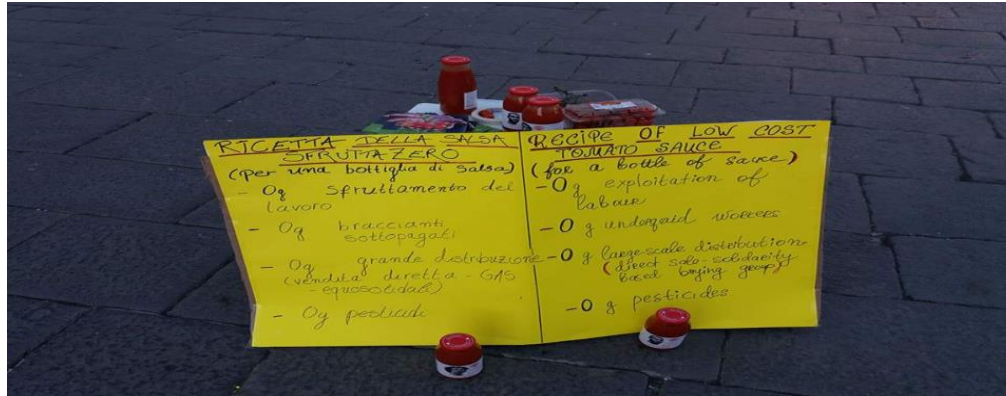 RICETTA DELLA SALSA
SFRUTTAZERO
(per una bottiglia di salsa)
- 0g sfruttamento del
lavoro
- 0g braccianti
sottopagati
- 0g grande distribuzione
(vendita diretta - GAS
- equosolidali)
- 0g pesticidi
RECIPE OF LOW COST
TOMATO SAUCE
(for a bottle of sauce)
- 0 g exploitation of
labour
- 0 g underpaid workers
- 0 g large scale distribution
(direct sale - solidarity
based buying group)
- 0 g pesticides